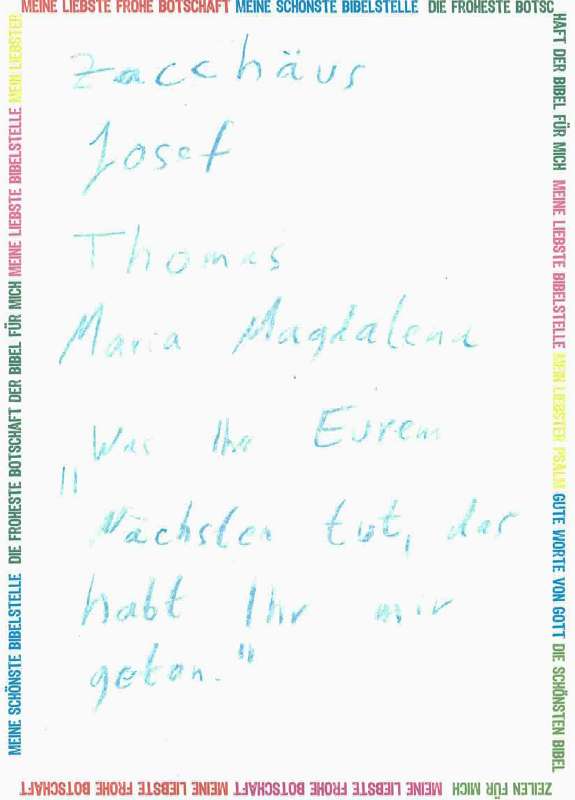 MEINE LIEBSTE FROHE BOTSCHAFT MEINE SCHÖNSTE BIBELSTELLE DIE FROHESTE BOTSC
HAFT DER BIBEL FÜR MICH MEINE LIEBSTE BIBELSTELLE MEIN LIEBSTER PSALM GUTE WORTE VON GOTT DIE SCHÖNSTEN BIBEL
ZEILEN FÜR MICH MEINE LIEBSTE FROHE BOTSCHAFT MEINE LIEBSTE FROHE BOTSCHAFT
MEINE SCHÖNSTE BIBELSTELLE DIE FROHESTE BOTSCHAFT DER BIBEL FÜR MICH MEINE LIEBSTE BIBELSTELLE MEIN LIEBSTER
Zacchäus
Josef
Thomas
Maria Magdalena
"Was Ihr Eurem
Nächsten tut, das
habt Ihr mir
getan."